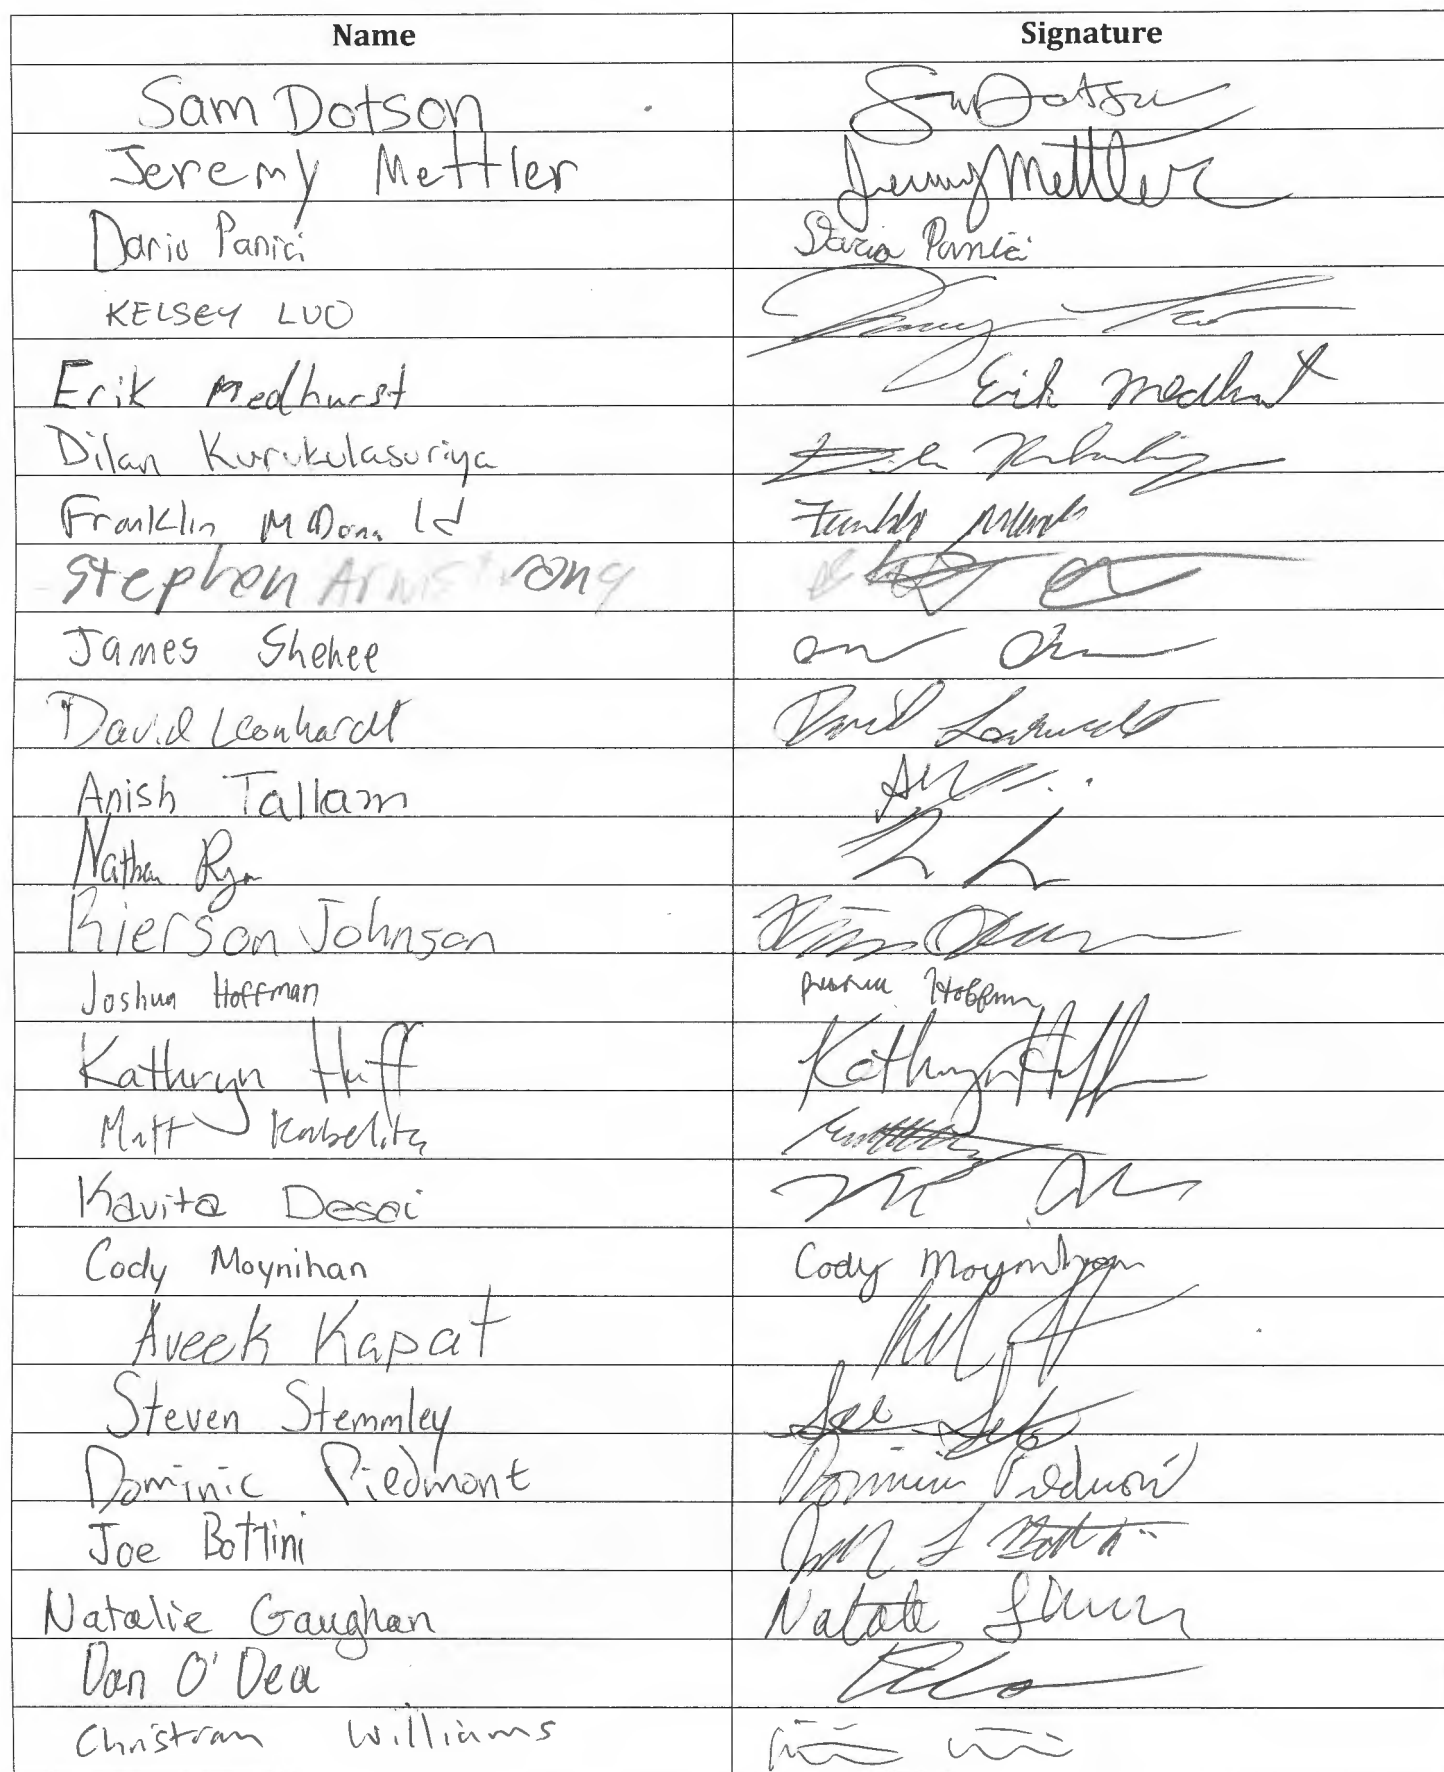 Name Signature
Sam Dotson Sam Dotson
Jeremy Mettler Jeremy Mettler
Dario Panici Dario Panici
KELSEY LUO
Erik Medhurst Erik Medhurst
Dilan Kurukulasuriya
Franklin McDonald
Stephen Armstrong
James Shehee
David Leonhardt David Leonhardt
Anish Tallam
Nathan Ryan
Rierson Johnson
Joshua Hoffman Joshua Hoffman
Kathryn Huff Kathryn Huff
Matt Kabelitz
Kavita Desai
Cody Moynihan Cody Moynihan
Aveek Kapat
Steven Stemmley
Dominic Piedmont Dominic Piedmont
Joe Bottini
Natalie Gaughan Natalie
Dan O'Dea
Christian Williams